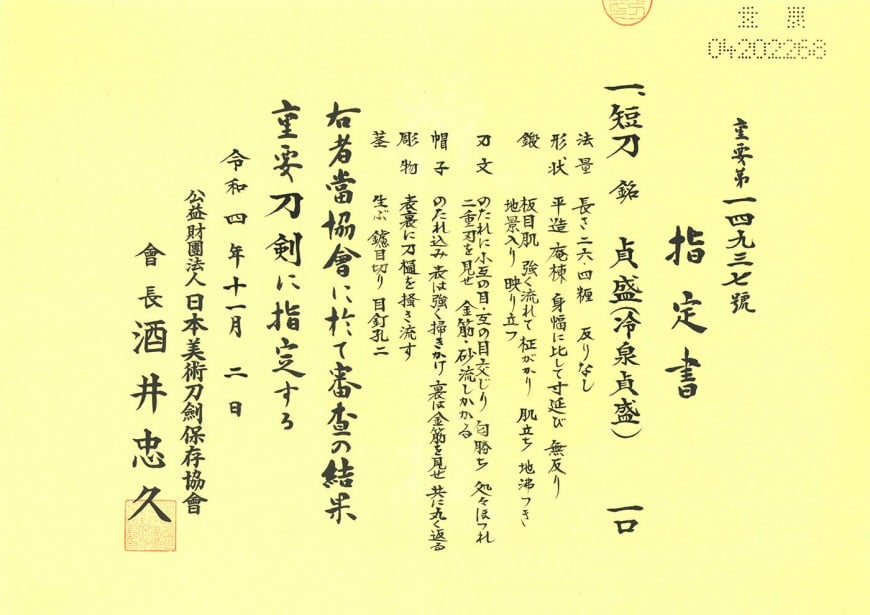 重要
04202268
重要第一四九三七號
指定書
一、短刀 銘 貞盛(冷泉貞盛) 一口
法量 長さ二六・四糎 反りなし
形状 平造 庵棟 身幅に比して寸延び 無反り
鍛 板目肌 強く流れて柾がかり 肌立ち 地沸つき
地景入り 映り立つ
刃文 のたれに小互の目・互の目交じり 匂勝ち 処々ほつれ
二重刃を見せ 金筋・砂流しかかる
帽子 のたれ込み 表は強く掃きかけ 裏は金筋を見せ 共に丸く返る
彫物 表裏に刀樋を掻き流す
茎 生ぶ 鑢目切り 目釘孔二
右者當協會に於て審査の結果
重要刀剣に指定する
令和四年十一月二日
公益財團法人日本美術刀劍保存協會
會長 酒井忠久